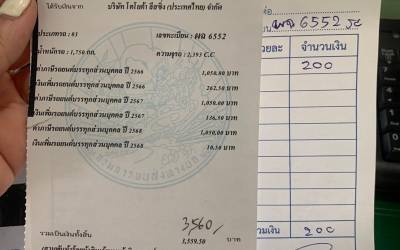 ได้รับเงินจาก บริษัท โตโยต้า ลีสซิ่ง (ประเทศไทย) จำกัด
ประเภทรถ : 03 เลขทะเบียน : ผฉ 6552
น้ำหนักรถ : 1,750 กก. ความจุรถ : 2,393 C.C
ค่าภาษีรถยนต์บรรทุกส่วนบุคคล ปี 2566 1,050.00 บาท
เงินเพิ่มรถยนต์บรรทุกส่วนบุคคล ปี 2566 262.50 บาท
ค่าภาษีรถยนต์บรรทุกส่วนบุคคล ปี 2567 1,050.00 บาท
เงินเพิ่มรถยนต์บรรทุกส่วนบุคคล ปี 2567 136.50 บาท
ค่าภาษีรถยนต์บรรทุกส่วนบุคคล ปี 2568 1,050.00 บาท
เงินเพิ่มรถยนต์บรรทุกส่วนบุคคล ปี 2568 10.50 บาท
3,560/
รวมเป็นเงินทั้งสิ้น 3,559.50 บาท
6552
ยละ จำนวนเงิน
200
วมเงิน 200